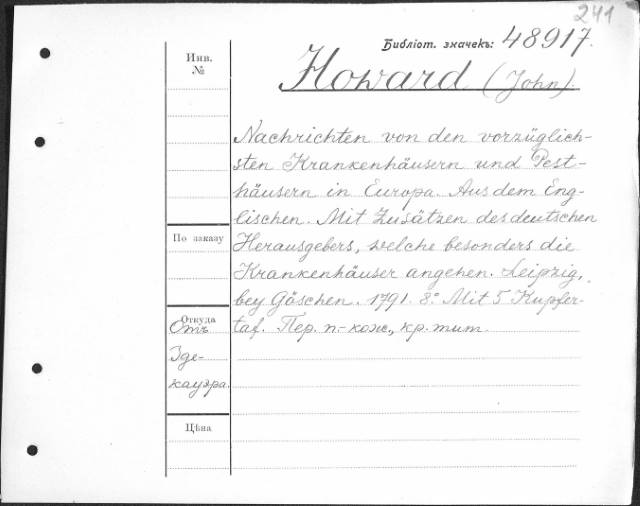 241
Библіот. значекъ: 48917.
Инв.
№
Howard (John)
Nachrichten von den vorzüglich-
sten Krankenhäusern und Pest-
häusern in Europa. Aus dem Eng-
lischen. Mit Zusätzen des deutschen
По заказу
Herausgebers, welche besonders die
Krankenhäuser angehen. Leipzig,
bey Göschen. 1791. 8.° Mit 5 Kupfer-
taf. Пер. п.-кож., кр. тит.
Откуда
Отъ
Эде-
кауэра.
Цѣна